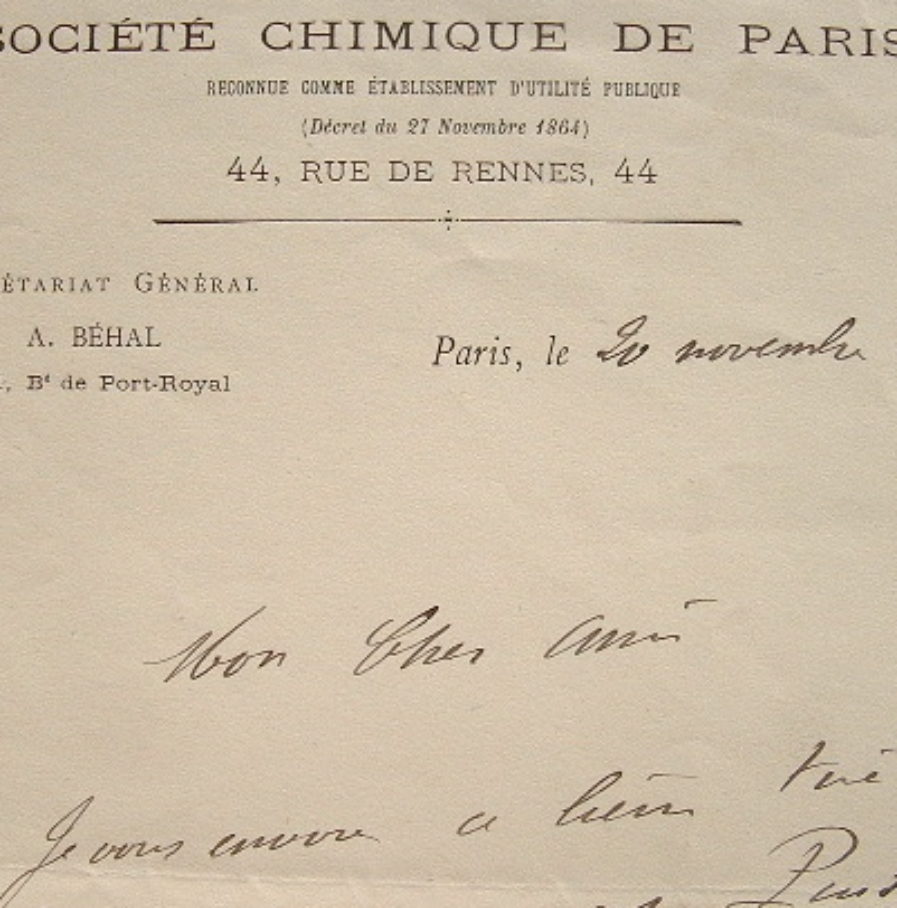 SOCIÉTÉ CHIMIQUE DE PARIS
RECONNUE COMME ÉTABLISSEMENT D'UTILITÉ PUBLIQUE
(Décret du 27 Novembre 1864)
44, RUE DE RENNES, 44
ÉTARIAT GÉNÉRAL
A. BÉHAL
Bd de Port-Royal
Paris, le 20 novembre
Mon Cher ami
Je vous envoie ce lièvre tué